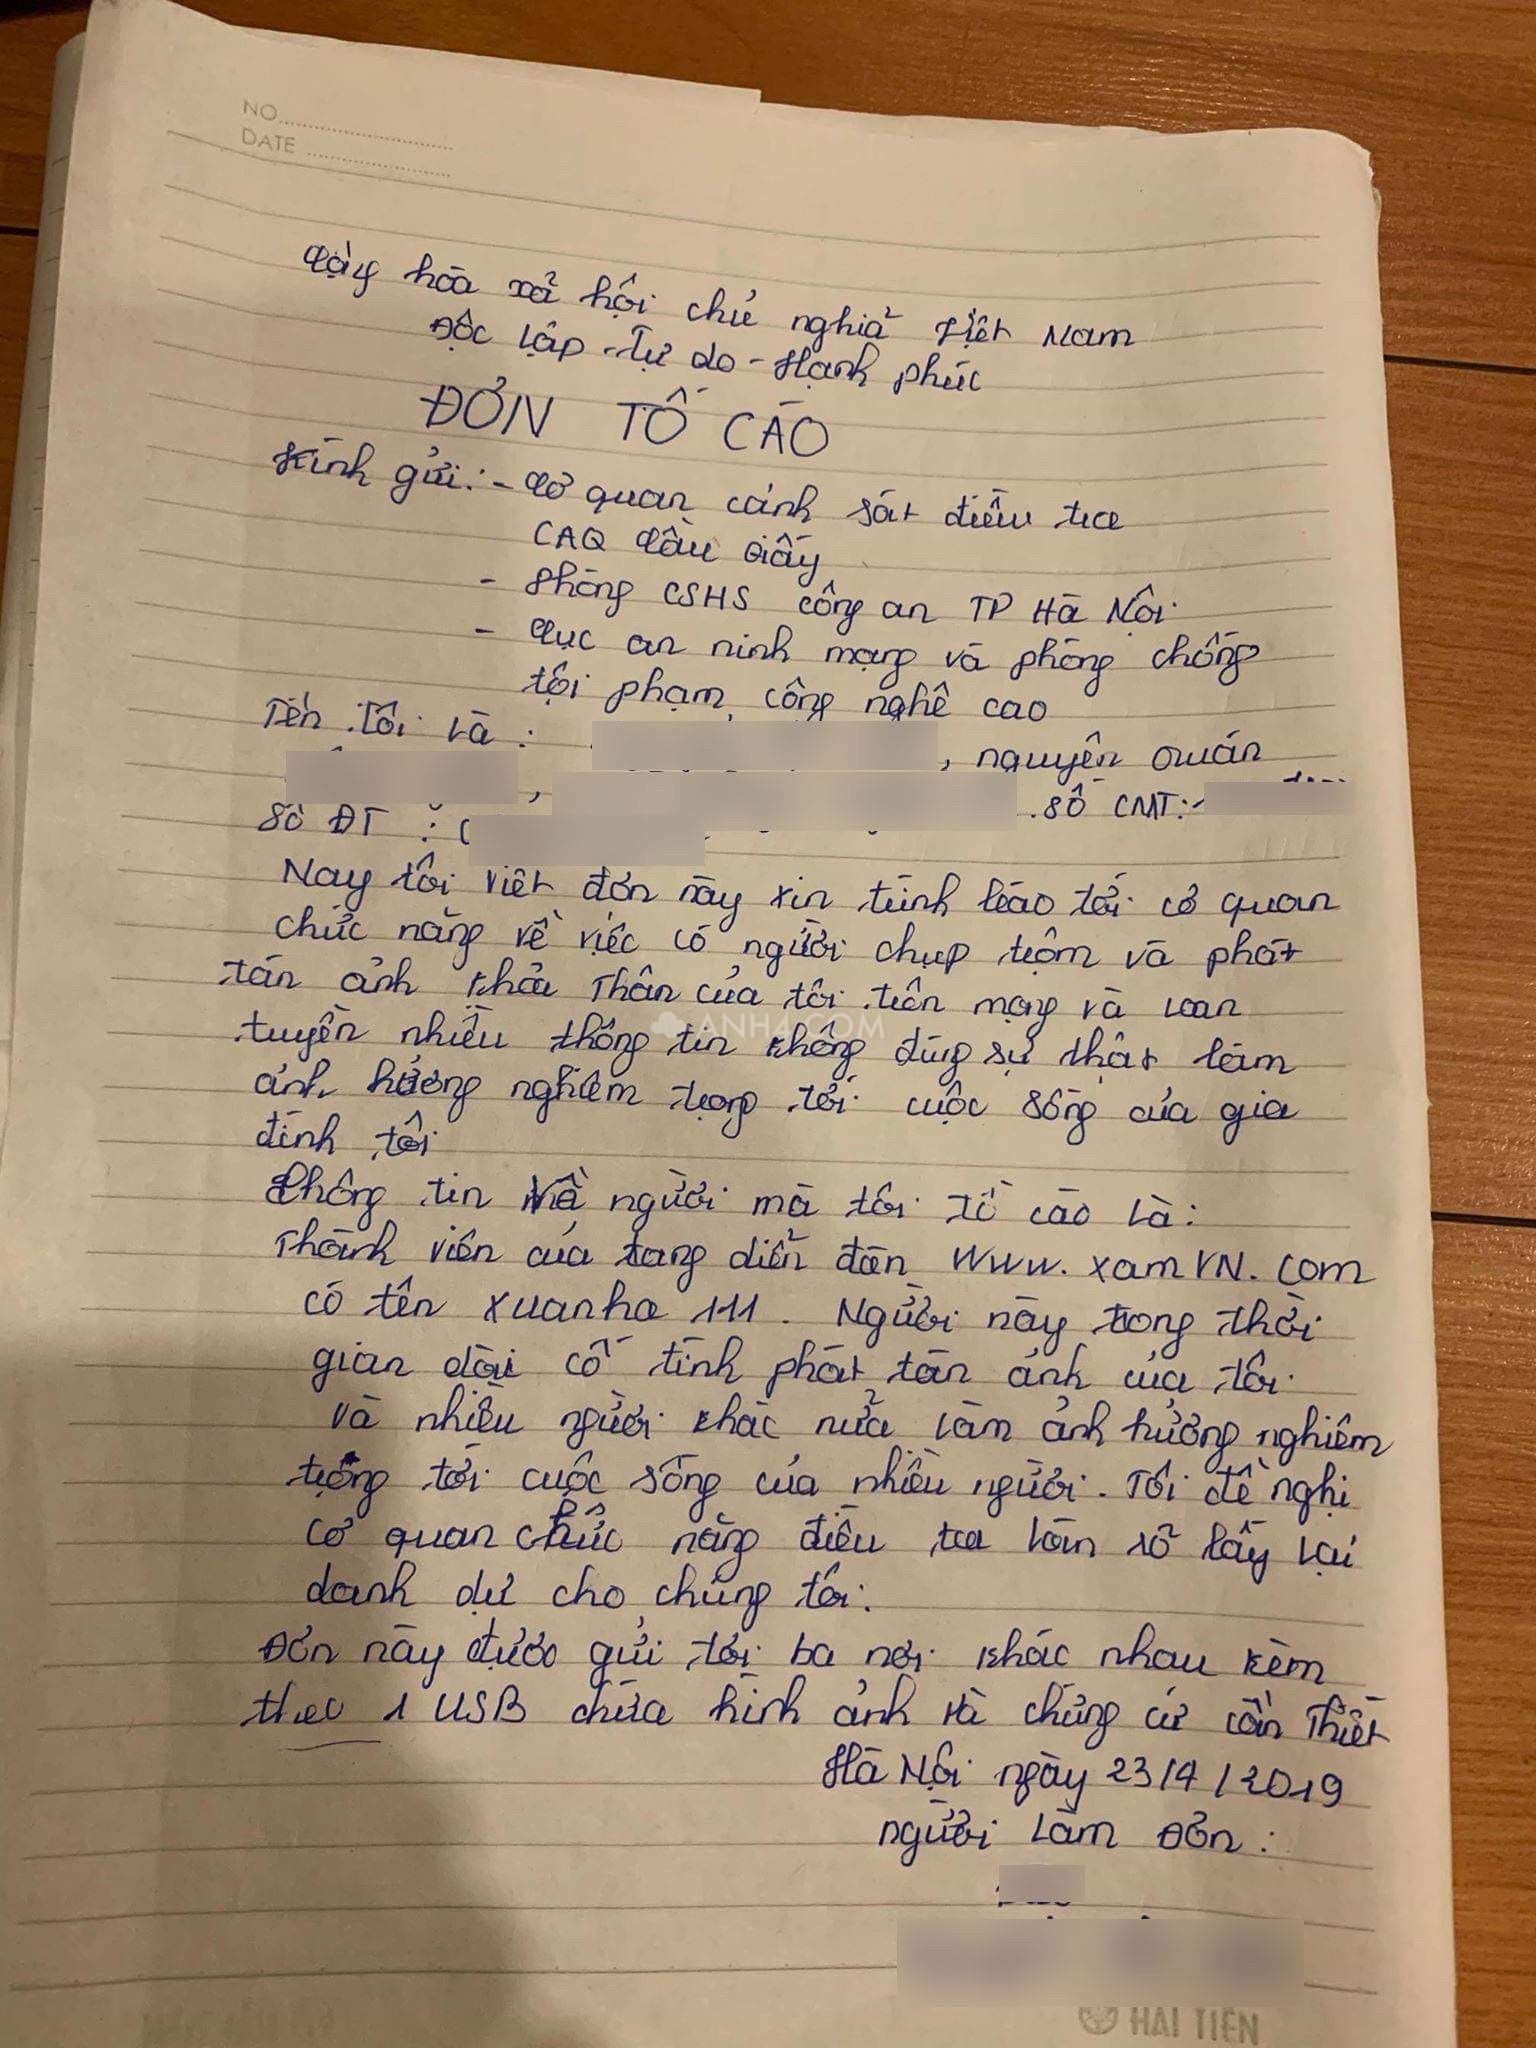 NO
DATE
Cộng hòa xã hội chủ nghĩa Việt Nam
Độc lập - Tự do - Hạnh phúc
ĐƠN TỐ CÁO
Kính gửi: - Cơ quan cảnh sát điều tra
CAQ Cầu Giấy
- Phòng CSHS công an TP Hà Nội
- Cục an ninh mạng và phòng chống
tội phạm công nghệ cao
Tên Tôi là : , nguyên quán
, . Số CMT:
Số ĐT :
Nay tôi viết đơn này xin trình báo tới cơ quan
chức năng về việc có người chụp trộm và phát
tán ảnh khỏa Thân của tôi trên mạng và loan
ANH4.COM
truyền nhiều thông tin không đúng sự thật làm
ảnh hưởng nghiêm trọng tới cuộc sống của gia
đình tôi
Thông tin về người mà tôi tố cáo là:
Thành viên của trang diễn đàn www.xamVN.com
có tên xuanha 111. Người này trong thời
gian dài cố tình phát tán ảnh của tôi
và nhiều người khác nữa làm ảnh hưởng nghiêm
trọng tới cuộc sống của nhiều người. Tôi đề nghị
cơ quan chức năng điều tra làm rõ lấy lại
danh dự cho chúng tôi.
Đơn này được gửi tới ba nơi khác nhau kèm
theo 1 USB chứa hình ảnh và chứng cứ cần Thiết
Hà Nội ngày 23/4/2019
người làm Đơn :
HẢI TIẾN